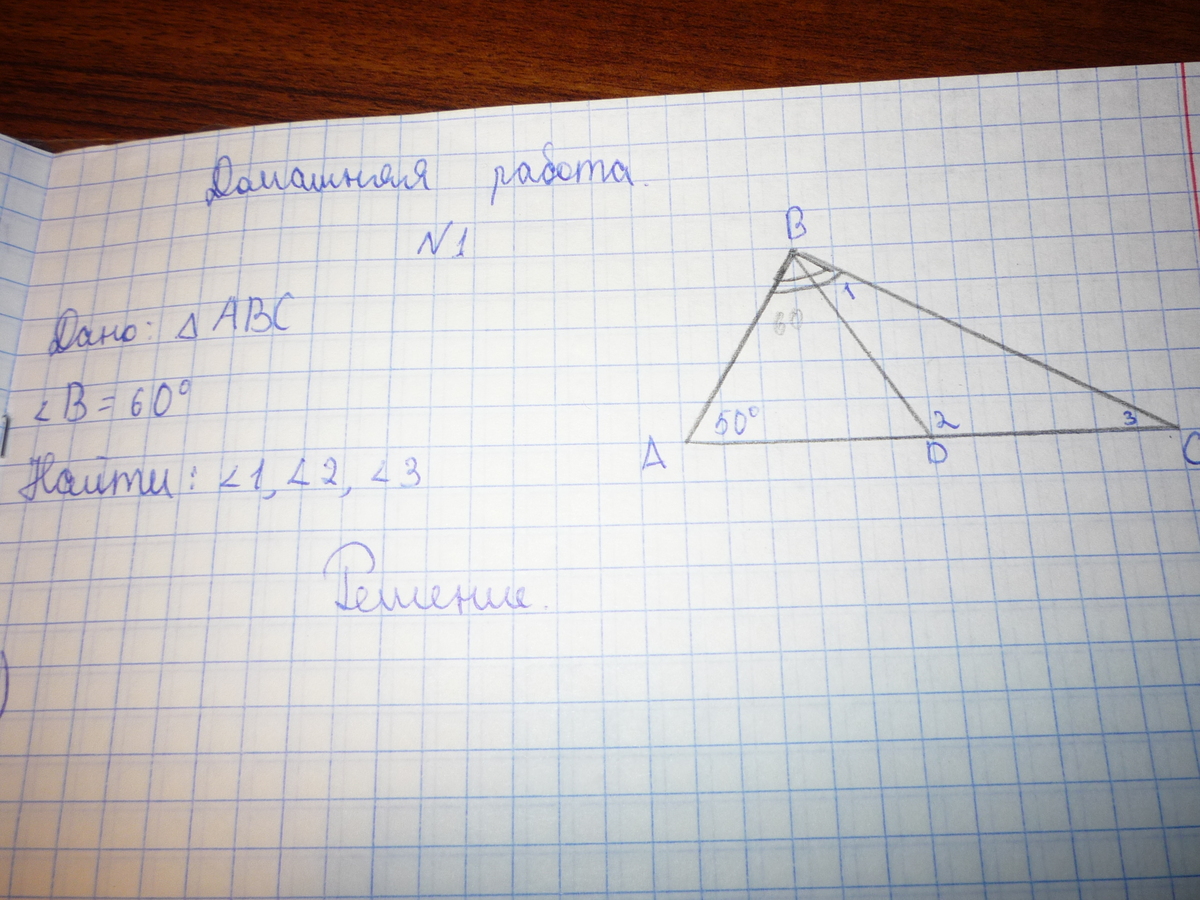 Домашняя работа.
N1
Дано: △ ABC
∠B = 60°
Найти: ∠1, ∠2, ∠3
Решение.
B
1
60
50°
2
3
A
D
C